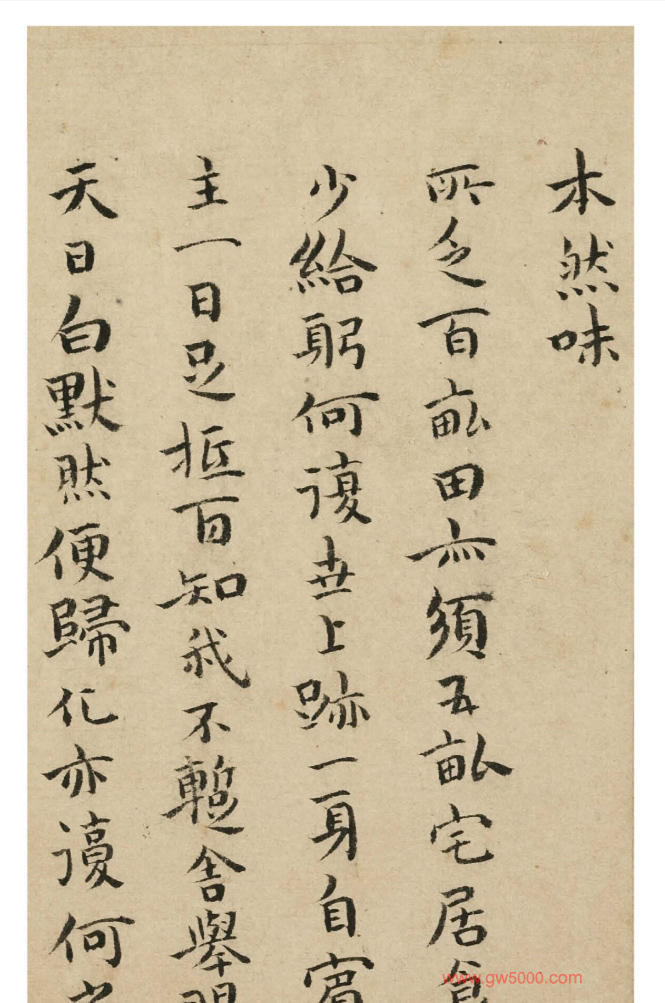 本然味
所乏百畝田亦須五畝宅居
少給躬何復世上跡一身自賓
主一日足抵百知我不暫舍舉
天日白默然便歸化亦復何
www.gw5000.com